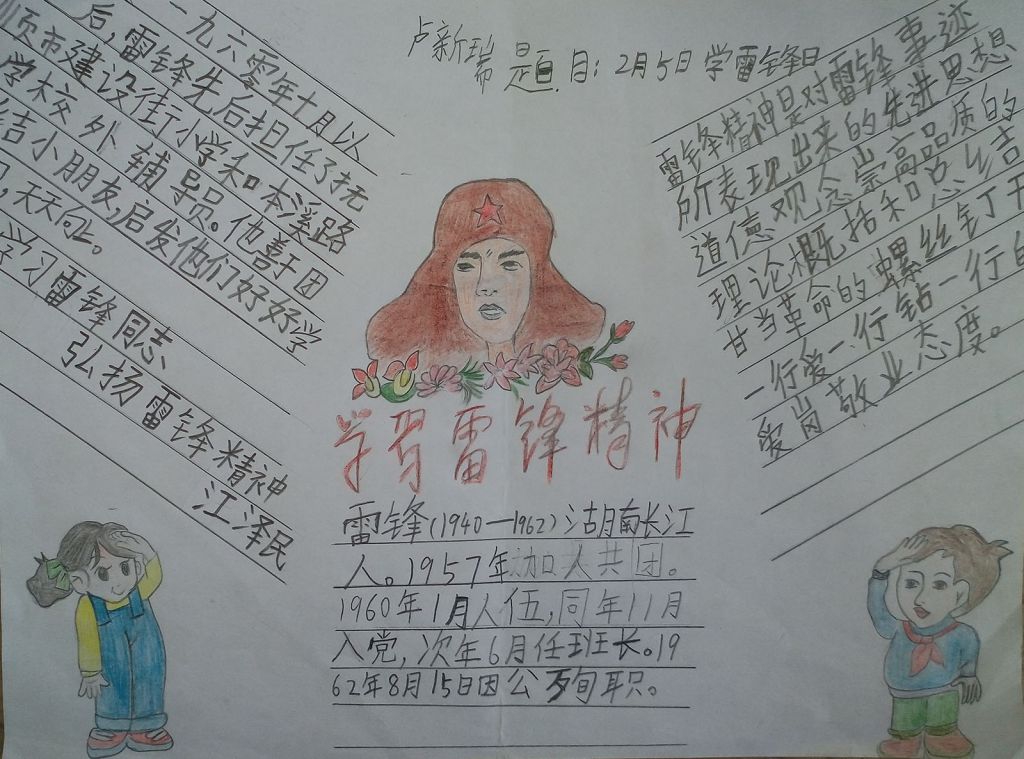 卢新瑞 题目：2月5日学雷锋日
一九六零年十月以
后，雷锋先后担任了抚
顺市建设街小学和本溪路
学校外辅导员。他善于团
结小朋友，启发他们好好学
习，天天向上。
学习雷锋同志
弘扬雷锋精神
江泽民
雷锋精神是对雷锋事迹
所表现出来的先进思想
道德观念崇高品质的
理论概括和总结
甘当革命的螺丝钉干
一行爱一行钻一行的
爱岗敬业态度。
学习雷锋精神
雷锋(1940—1962)湖南长江
人。1957年加入共团。
1960年1月人伍，同年11月
入党，次年6月任班长。19
62年8月15日因公殉职。